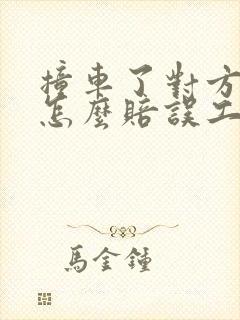 撞車了對方
怎麼賠誤工
馬金鐘